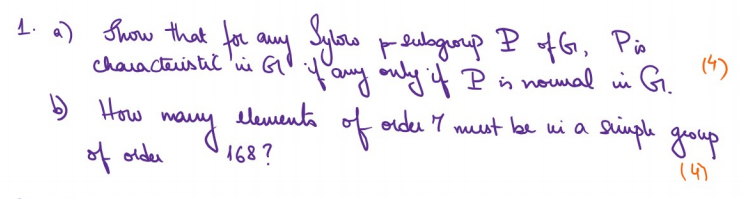 1. a) Show that for any Sylow p-subgroup P of G, P is
characteristic in G if any only if P is normal in G. (4)
b) How many elements of order 7 must be in a simple group
of order 168?
(4)